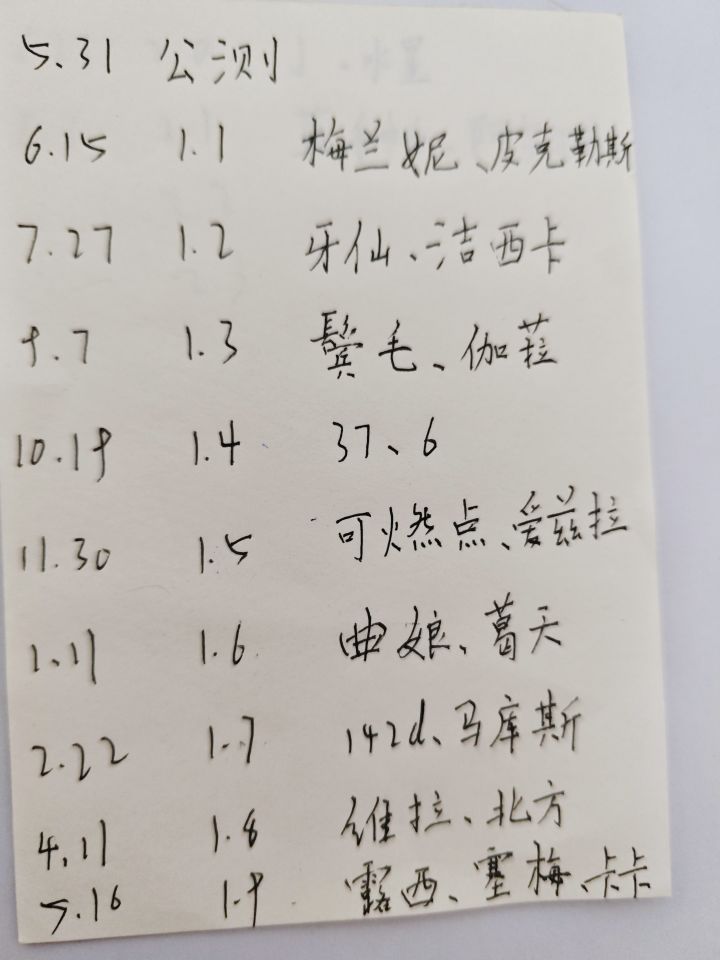 5.31 公测
6.15 1.1 梅兰妮、皮克勒斯
7.27 1.2 牙仙、洁西卡
9.7 1.3 鬃毛、伽菈
10.19 1.4 37、6
11.30 1.5 可燃点、爱兹拉
1.11 1.6 曲娘、葛天
2.22 1.7 142d、马库斯
4.11 1.8 维拉、北方
5.16 1.9 露西、塞梅、卡卡